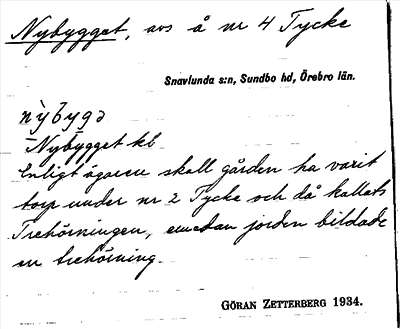 Nybygget, avs å nr 4 Tycke
Snavlunda s:n, Sundbo hd, Örebro län.
nỳbygə
Nybygget kb
Enligt ägaren skall gården ha varit
torp under nr 2 Tycke och då kallats
Trehörningen, emedan jorden bildade
en trehörning.
GÖRAN ZETTERBERG 1934.